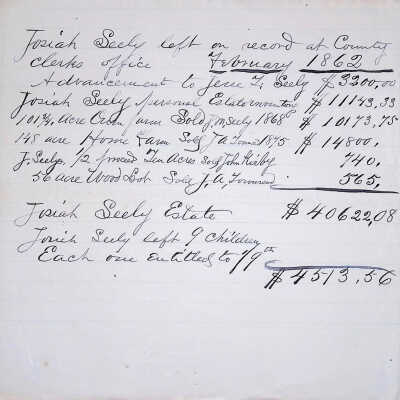 Josiah Seely left on record at County
clerks office February 1862
Advancement to Jesse T. Seely $3200,00
Josiah Seely personal Estate inventory $11143,33
101¾ Acre farm Sold J. M Seely 1868 $10173,75
148 acre Home Farm Sold J A 1875 $14800.
J. Seelys 1/2 Ten Acres Sold John 740.
56 acre Wood Lot Sold J. A. 565.
Josiah Seely Estate $40622,08
Josiah Seely left 9 Children
Each one entitled to 1/9th
$4513,56